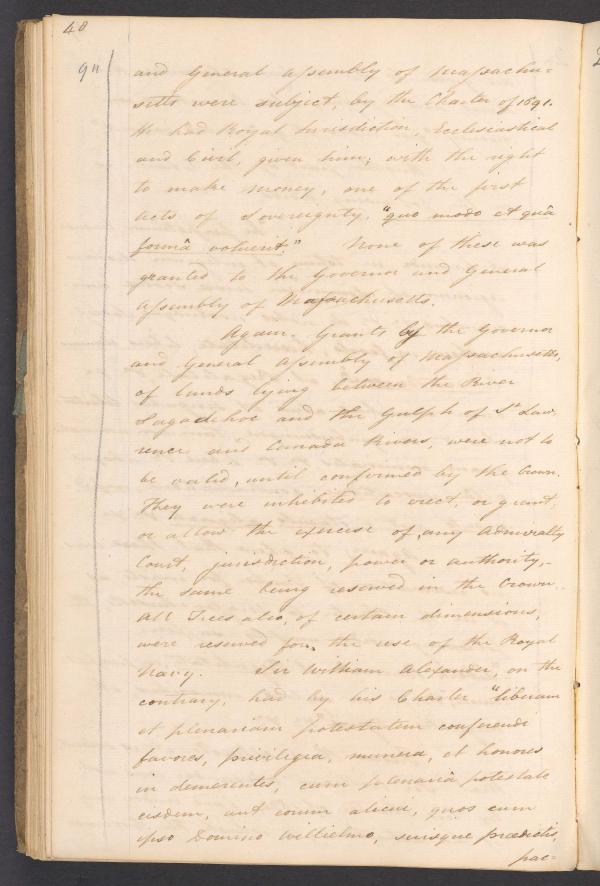 48
911
and General Assembly of Massachu=
setts were subject, by the Charter of 1691.
He had Royal Jurisdiction, Ecclesiastical
and Civil, given him; with the right
to make money, one of the first
acts of Sovereignty, "quo modo et quâ
formâ voluerit." None of these was
granted to the Governor and General
Assembly of Massachusetts.
Again. Grants by the Governor
and General Assembly of Massachusetts,
of lands lying between the River
Sagadehoc and the Gulph of St Law
rence and Canada Rivers, were not to
be valid, until confirmed by the Crown.
They were inhibited to erect, or grant,
or allow the exercise of, any Admiralty
Court, jurisdiction, power or authority,-
the same being reserved in the Crown.
All Trees also, of certain dimensions,
were reserved for, the use of the Royal
Navy. Sir William Alexander, on the
contrary, had by his Charter "liberam
et plenariam potestatem conferendi
favores, privilegia, munera, et honores
in demerentes, cum plenariâ potestate
eisdem, aut eorum alicui, quos cum
ipso Domino Willielmo, suisque prædictis,
pac=